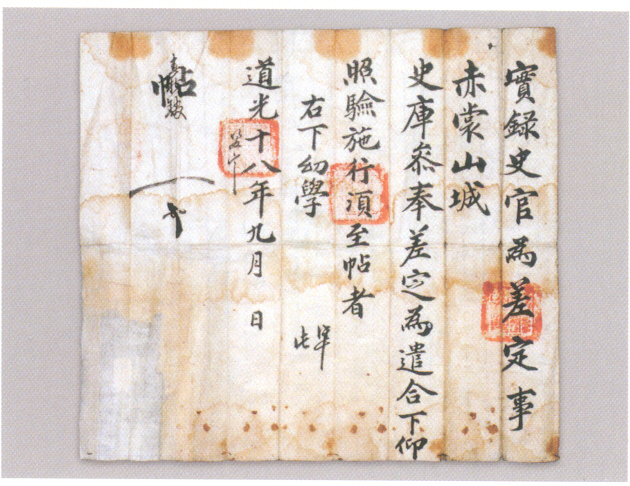 實錄史官為差定事
赤裳山城
史庫叅奉差㝎為遣合下仰
照驗施行湏至帖者
右下幼學 準此
道光十八年九月 日
帖